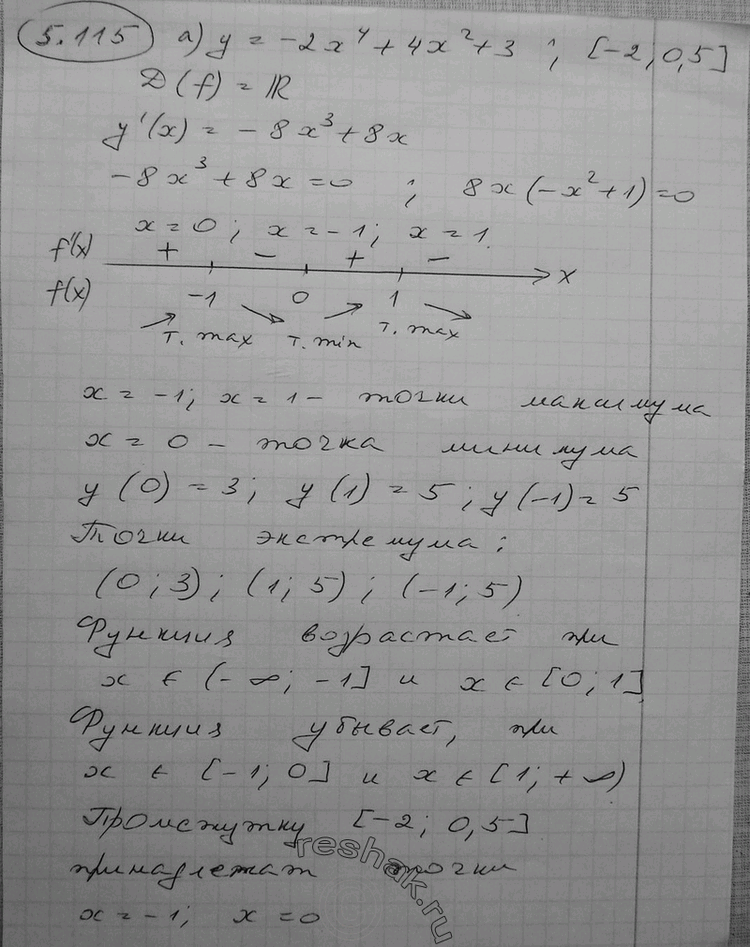 5.115 а) y = -2x⁴ + 4x² + 3 ; [-2; 0,5]
D(f) = ℝ
y'(x) = -8x³ + 8x
-8x³ + 8x = 0 ; 8x(-x² + 1) = 0
x = 0 ; x = -1 ; x = 1
f'(x) + - + -
x
f(x) -1 0 1
т. max т. min т. max
x = -1; x = 1 - точки максимума
x = 0 - точка минимума
y(0) = 3; y(1) = 5; y(-1) = 5
Точки экстремума:
(0; 3); (1; 5); (-1; 5)
Функция возрастает при
x ∈ (-∞; -1] и x ∈ [0; 1]
Функция убывает, при
x ∈ [-1; 0] и x ∈ [1; +∞)
Промежутку [-2; 0,5]
принадлежат точки
x = -1; x = 0
reshak.ru